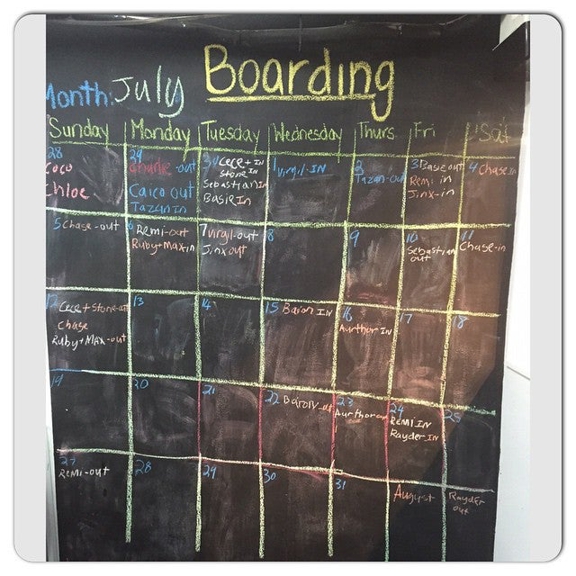 Month: July Boarding
Sunday Monday Tuesday Wednesday Thurs Fri Sat
28
Coco
Chloe
29
-out
Cairo out
Tazan in
Cece + IN
Stone IN
Sebastian IN
Basie IN
1 Virgil-IN
2
Tazan-out
3 Basie out
Remi in
Jinx-in
4 Chase in
5 Chase-out
6 Remi-out
Ruby+Max-in
7 Virgil-out
Jinx out
8
9
10
Sebastian
out
11
Chase-in
12 Cece + Stone-out
Chase
Ruby+Max-out
13
14
15 Baron IN
16
Aurthor IN
17
18
19
20
21
22
23
Aurthor-out
24
REMI IN
Rayder-IN
25
27
Remi-out
28
29
30
31
August
Rayder
out